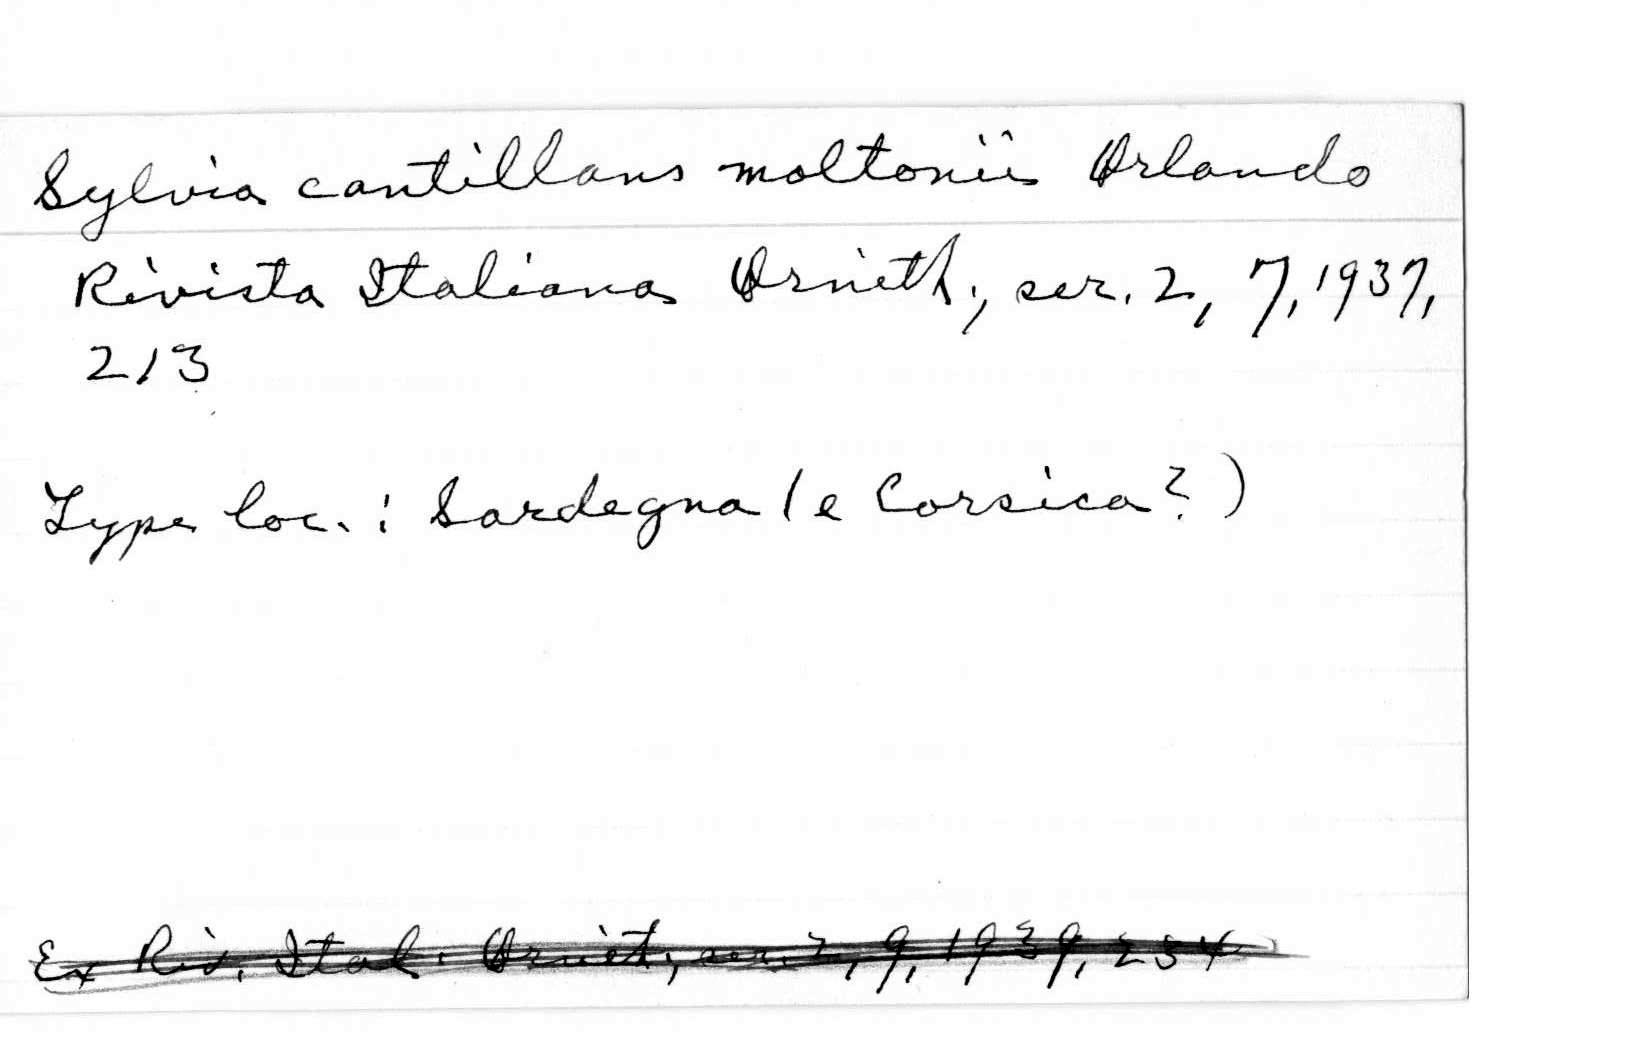 Sylvia cantillans moltonii Orlando
Rivista Italiana Ornith., ser. 2, 7, 1937,
213
Type loc.: Sardegna (e Corsica?)
Ex Riv. Ital. Ornit., ser. 2, 9, 1939, 234